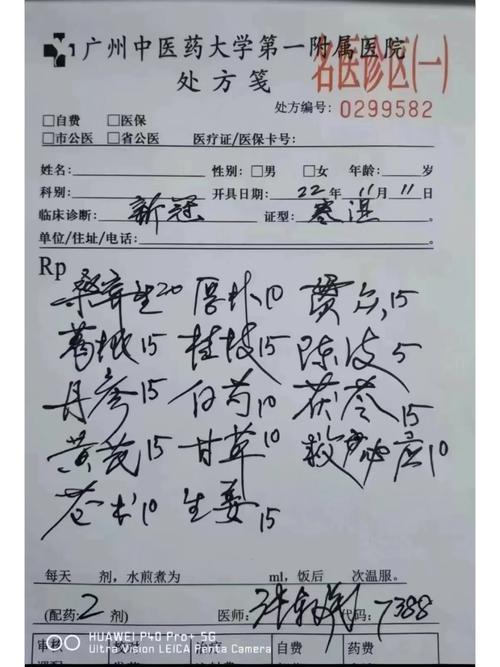 广州中医药大学第一附属医院
名医诊区(一)
处方笺
处方编号:0299582
□自费 □医保
□市公医 □省公医 医疗证/医保卡号:
姓名: 性别:□男 □女 年龄: 岁
科别: 开具日期:22年11月11日
临床诊断:新冠 证型:寒湿
单位/住址/电话:
Rp
桑寄生20 厚朴10 贯众15
葛根15 桂枝15 陈皮5
丹参15 白芍10 茯苓15
黄芪15 甘草10 救必应10
苍术10 生姜15
每天 剂,水煎煮为 ml,饭后 次温服。
(配药2剂) 医师: 代码:7388
审核 自费 药费
HUAWEI P40 Pro+ 5G
Ultra Vision LEICA Penta Camera